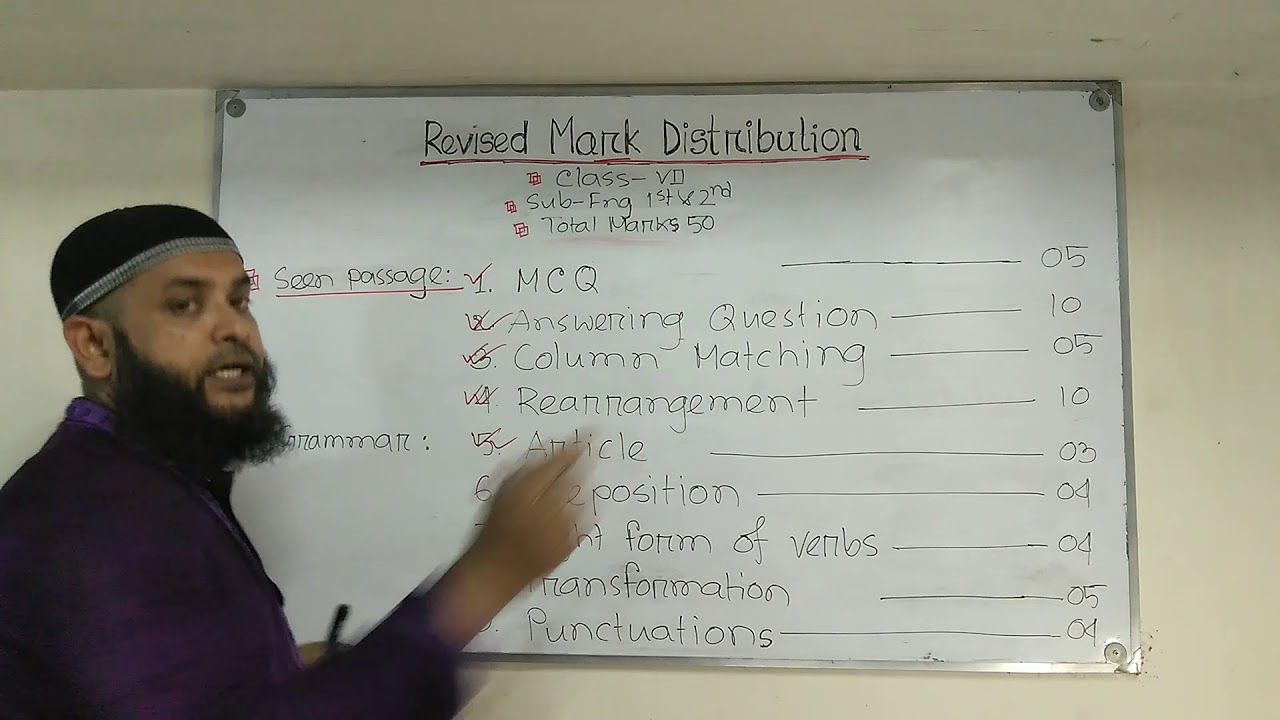 Revised Mark Distribution
Class- VII
Sub-Eng 1st & 2nd
Total Marks 50
Seen passage: 1. MCQ 05
2. Answering Question 10
3. Column Matching 05
4. Rearrangement 10
5. Article 03
6 04
form of verbs 04
05
Punctuations 04